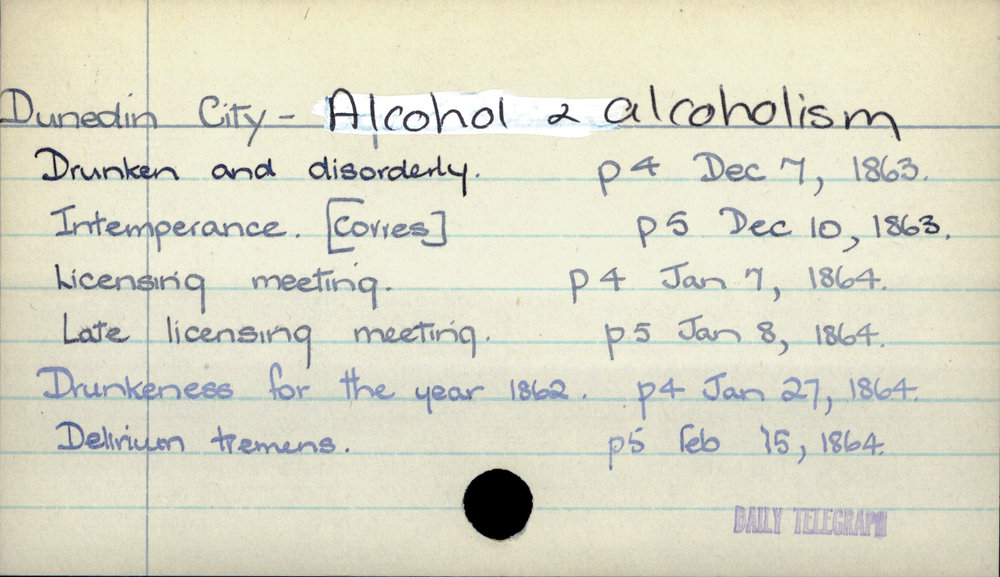 Dunedin City - Alcohol & alcoholism
Drunken and disorderly. p4 Dec 7, 1863.
Intemperance. [Corres] p5 Dec 10, 1863.
Licensing meeting. p4 Jan 7, 1864.
Late licensing meeting. p5 Jan 8, 1864.
Drunkeness for the year 1862. p4 Jan 27, 1864.
Delirium tremens. p5 Feb 15, 1864.
DAILY TELEGRAPH